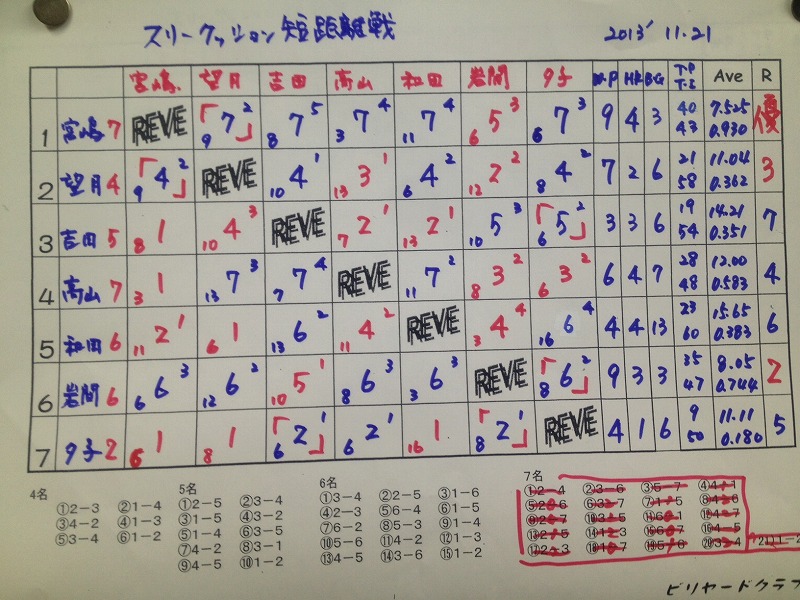 スリークッション短距離戦 2013' 11.21
宮嶋 望月 吉田 高山 和田 岩間 夕子 M.P HR BG T.P T.I Ave R
1 宮嶋 7 REVE 「9 7 2」 8 7 5 3 7 4 11 7 4 6 5 3 6 7 3 9 4 3 40 43 7.525 0.930 優
2 望月 4 「9 4 2」 REVE 10 4 1 13 3 1 6 4 2 12 2 2 8 4 2 7 2 6 21 58 11.04 0.362 3
3 吉田 5 8 1 10 4 3 REVE 7 2 1 13 2 1 10 5 3 「6 5 2」 3 3 6 19 54 14.21 0.351 7
4 高山 7 3 1 13 7 3 7 7 4 REVE 11 7 2 8 3 2 6 3 2 6 4 7 28 48 12.00 0.583 4
5 和田 6 11 2 1 6 1 13 6 2 11 4 2 REVE 3 4 4 16 6 4 4 4 13 23 60 15.65 0.383 6
6 岩間 6 6 6 3 12 6 2 10 5 1 8 6 3 3 6 3 REVE 「8 6 2」 9 3 3 35 47 8.05 0.744 2
7 夕子 2 6 1 8 1 「6 2 1」 6 2 1 16 1 「8 2 1」 REVE 4 1 6 9 50 11.11 0.180 5
4名
①2-3 ②1-4
③4-2 ④1-3
⑤3-4 ⑥1-2
5名
①2-5 ②3-4
③1-5 ④3-2
⑤1-4 ⑥3-5
⑦4-2 ⑧3-1
⑨4-5 ⑩1-2
6名
①3-4 ②2-5 ③1-6
④3-2 ⑤6-4 ⑥1-5
⑦6-2 ⑧5-3 ⑨1-4
⑩5-6 ⑪4-2 ⑫1-3
⑬4-5 ⑭3-6 ⑮1-2
7名
①2-4 ②3-6 ③5-7 ④4-1
ビリヤードクラブ